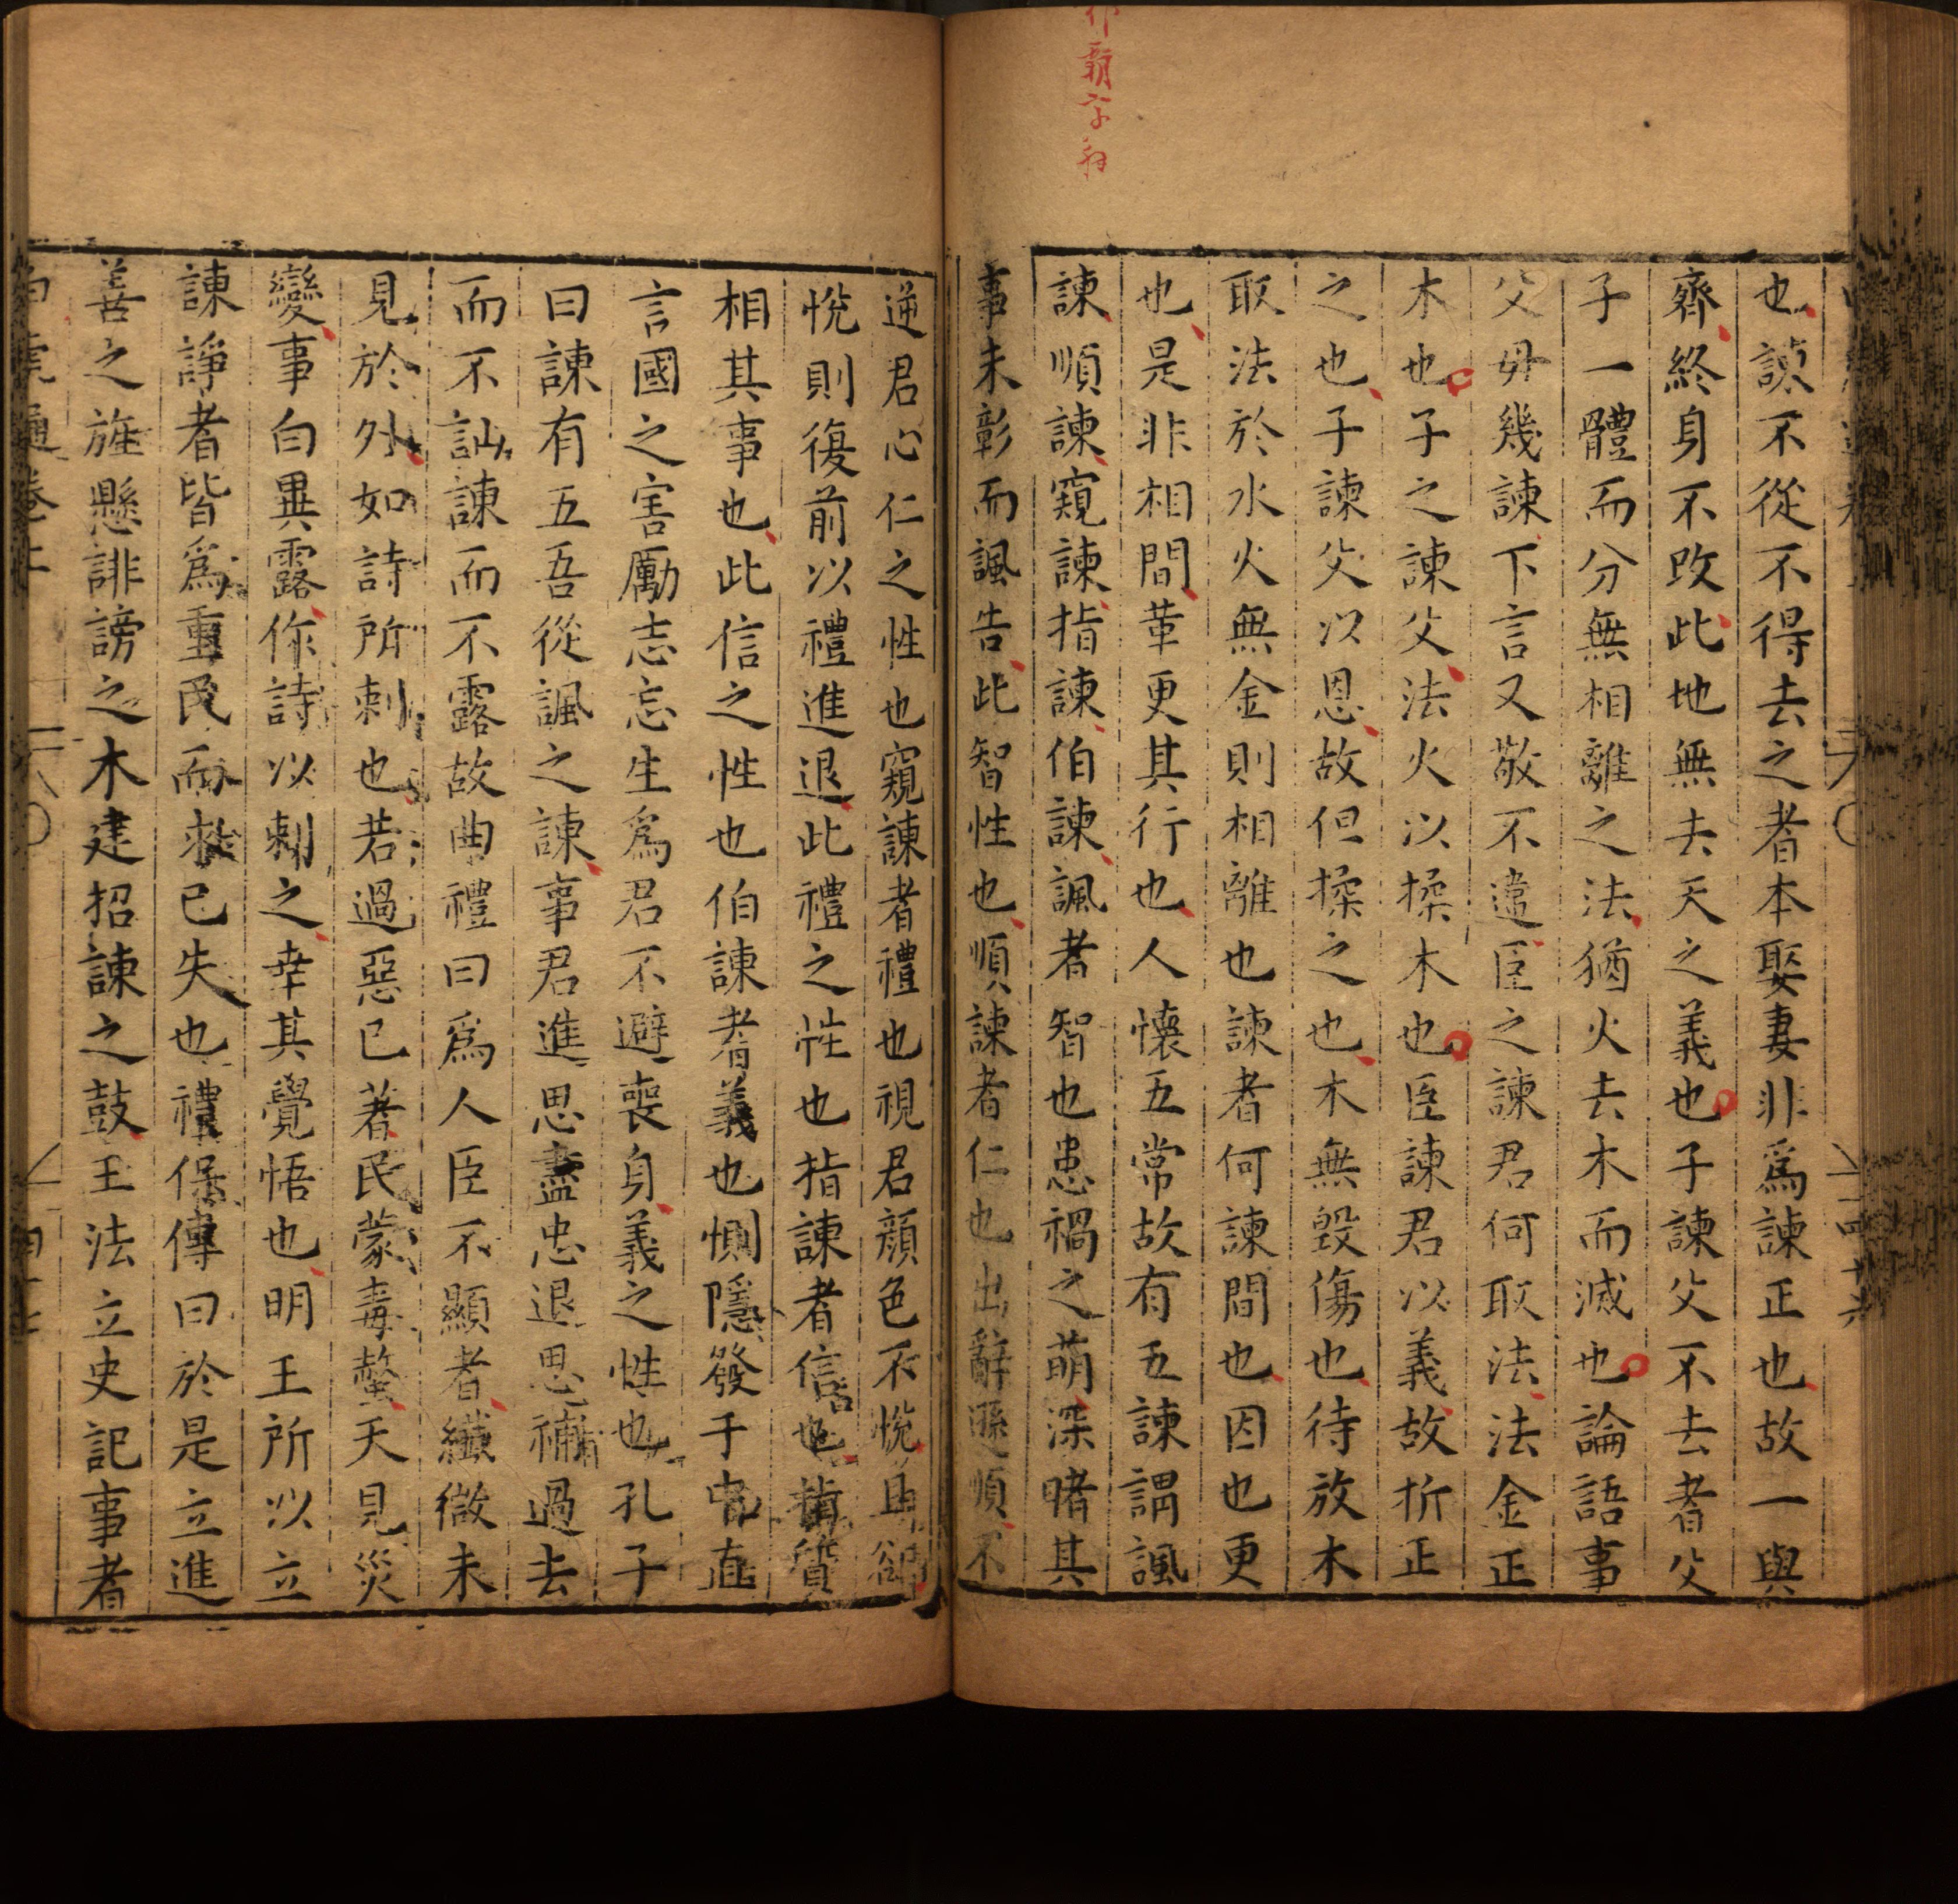 也諒不從不得去之者本娶妻非爲諫正也故一與
齊終身不改此地無去天之義也子諫父不去者父
子一體而分無相離之法猶火去木而滅也論語事
父母幾諫下言又敬不違臣之諫君何取法法金正
木也子之諫父法火以揉木也臣諫君以義故折正
之也子諫父以恩故但揉之也木無毀傷也待放木
取法於水火無金則相離也諫者何諫間也因也更
也是非相間革更其行也人懷五常故有五諫謂諷
諫順諫窺諫指諫伯諫諷者智也患禍之萌深睹其
事未彰而諷告此智性也順諫者仁也出辭遜順不
逆君心仁之性也窺諫者禮也視君顔色不悅且郤
悅則復前以禮進退此禮之性也指諫者信也指質
相其事也此信之性也伯諫者義也惻隱發于中直
言國之害勵志忘生爲君不避喪身義之性也孔子
曰諫有五吾從諷之諫事君進思盡忠退思補過去
而不訕諫而不露故曲禮曰爲人臣不顯者纎微未
見於外如詩所刺也若過惡已著民蒙毒螫天見災
變事白異露作詩以刺之幸其覺悟也明王所以立
諫諍者皆爲重民而求已失也禮保傅曰於是立進
善之旌懸誹謗之木建招諫之鼓王法立史記事者